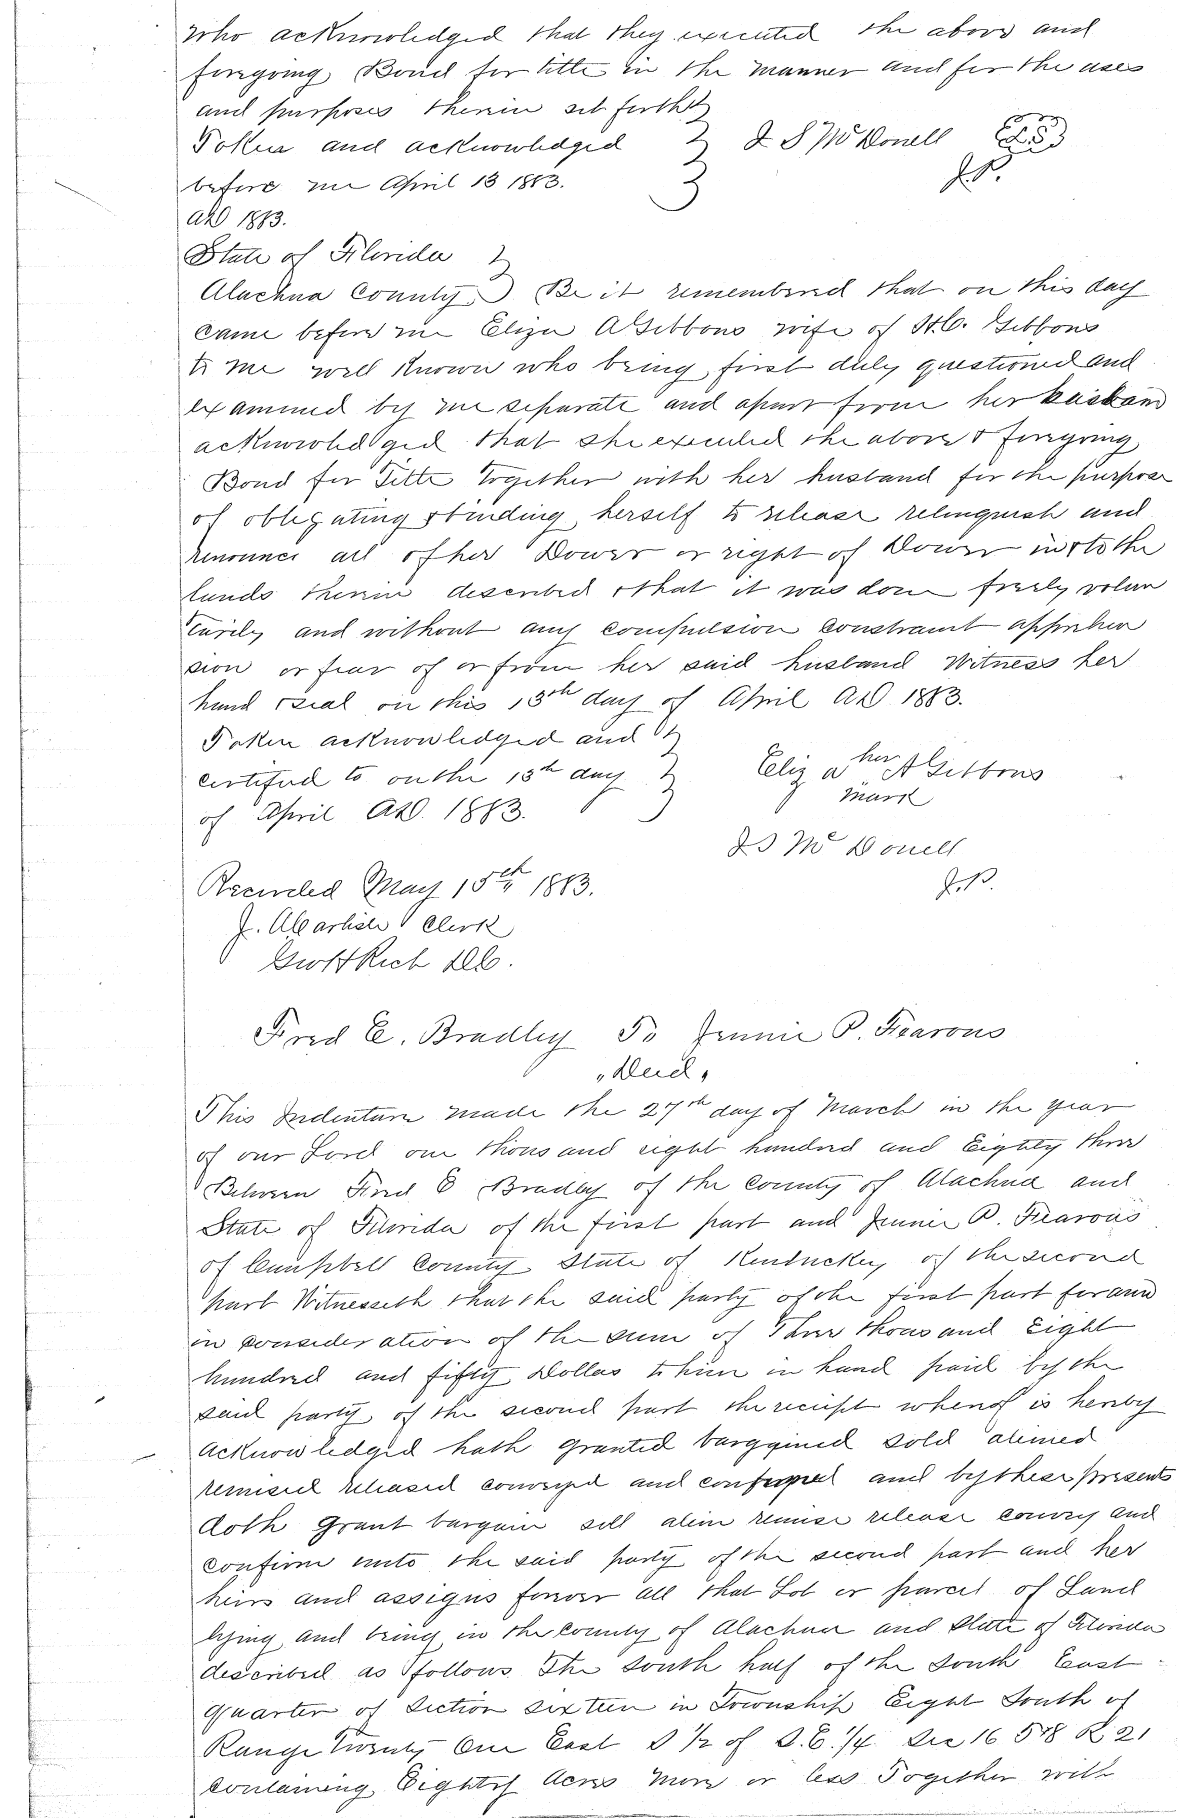 who acknowledged that they executed the above and
foregoing Bond for title in the manner and for the uses
and purposes therein set forth
Taken and acknowledged J S McDonell
before me April 13 1883. J.P.
AD 1883.
State of Florida
Alachua County Be it remembered that on this day
came before me Eliza A Gibbons wife of H.C. Gibbons
to me well known who being first duly questioned and
examined by me separate and apart from her husband
acknowledged that she executed the above & foregoing
Bond for Title together with her husband for the purpose
of obligating & binding herself to release relinquish and
renounce all of her Dower or right of Dower in & to the
lands therein described & that it was done freely volun
tarily and without any compulsion constraint apprehen
sion or fear of or from her said husband Witness her
hand & seal on this 13th day of April AD 1883.
Taken acknowledged and
certified to on the 13th day Eliza her A Gibbons
of April AD. 1883. mark
J S McDonell
Recorded May 15th 1883. J.P.
J. A Carlisle Clerk
Rich D.C.
Fred E. Bradley To Jennie P. Fearons
"Deed"
This Indenture made the 27th day of March in the year
of our Lord one thousand eight hundred and Eighty three
Between Fred E Bradley of the County of Alachua and
State of Florida of the first part and Jennie P. Fearons
of Campbell County State of Kentuckey of the second
part Witnesseth that the said party of the first part for and
in consideration of the sum of Three thousand Eight
hundred and fifty Dollas to him in hand paid by the
said party of the second part the receipt whereof is hereby
acknowledged hath granted bargained sold aliened
remised released conveyed and confirmed and by these presents
doth grant bargain sell alien remise release convey and
confirm unto the said party of the second part and her
heirs and assigns forever all that Lot or parcel of Land
lying and being in the County of Alachua and State of Florida
described as follows The South half of the South East
quarter of Section sixteen in Township Eight South of
Range Twenty One East S 1/2 of S.E. 1/4 Sec 16 T8 R 21
containing Eighty Acres more or less Together with